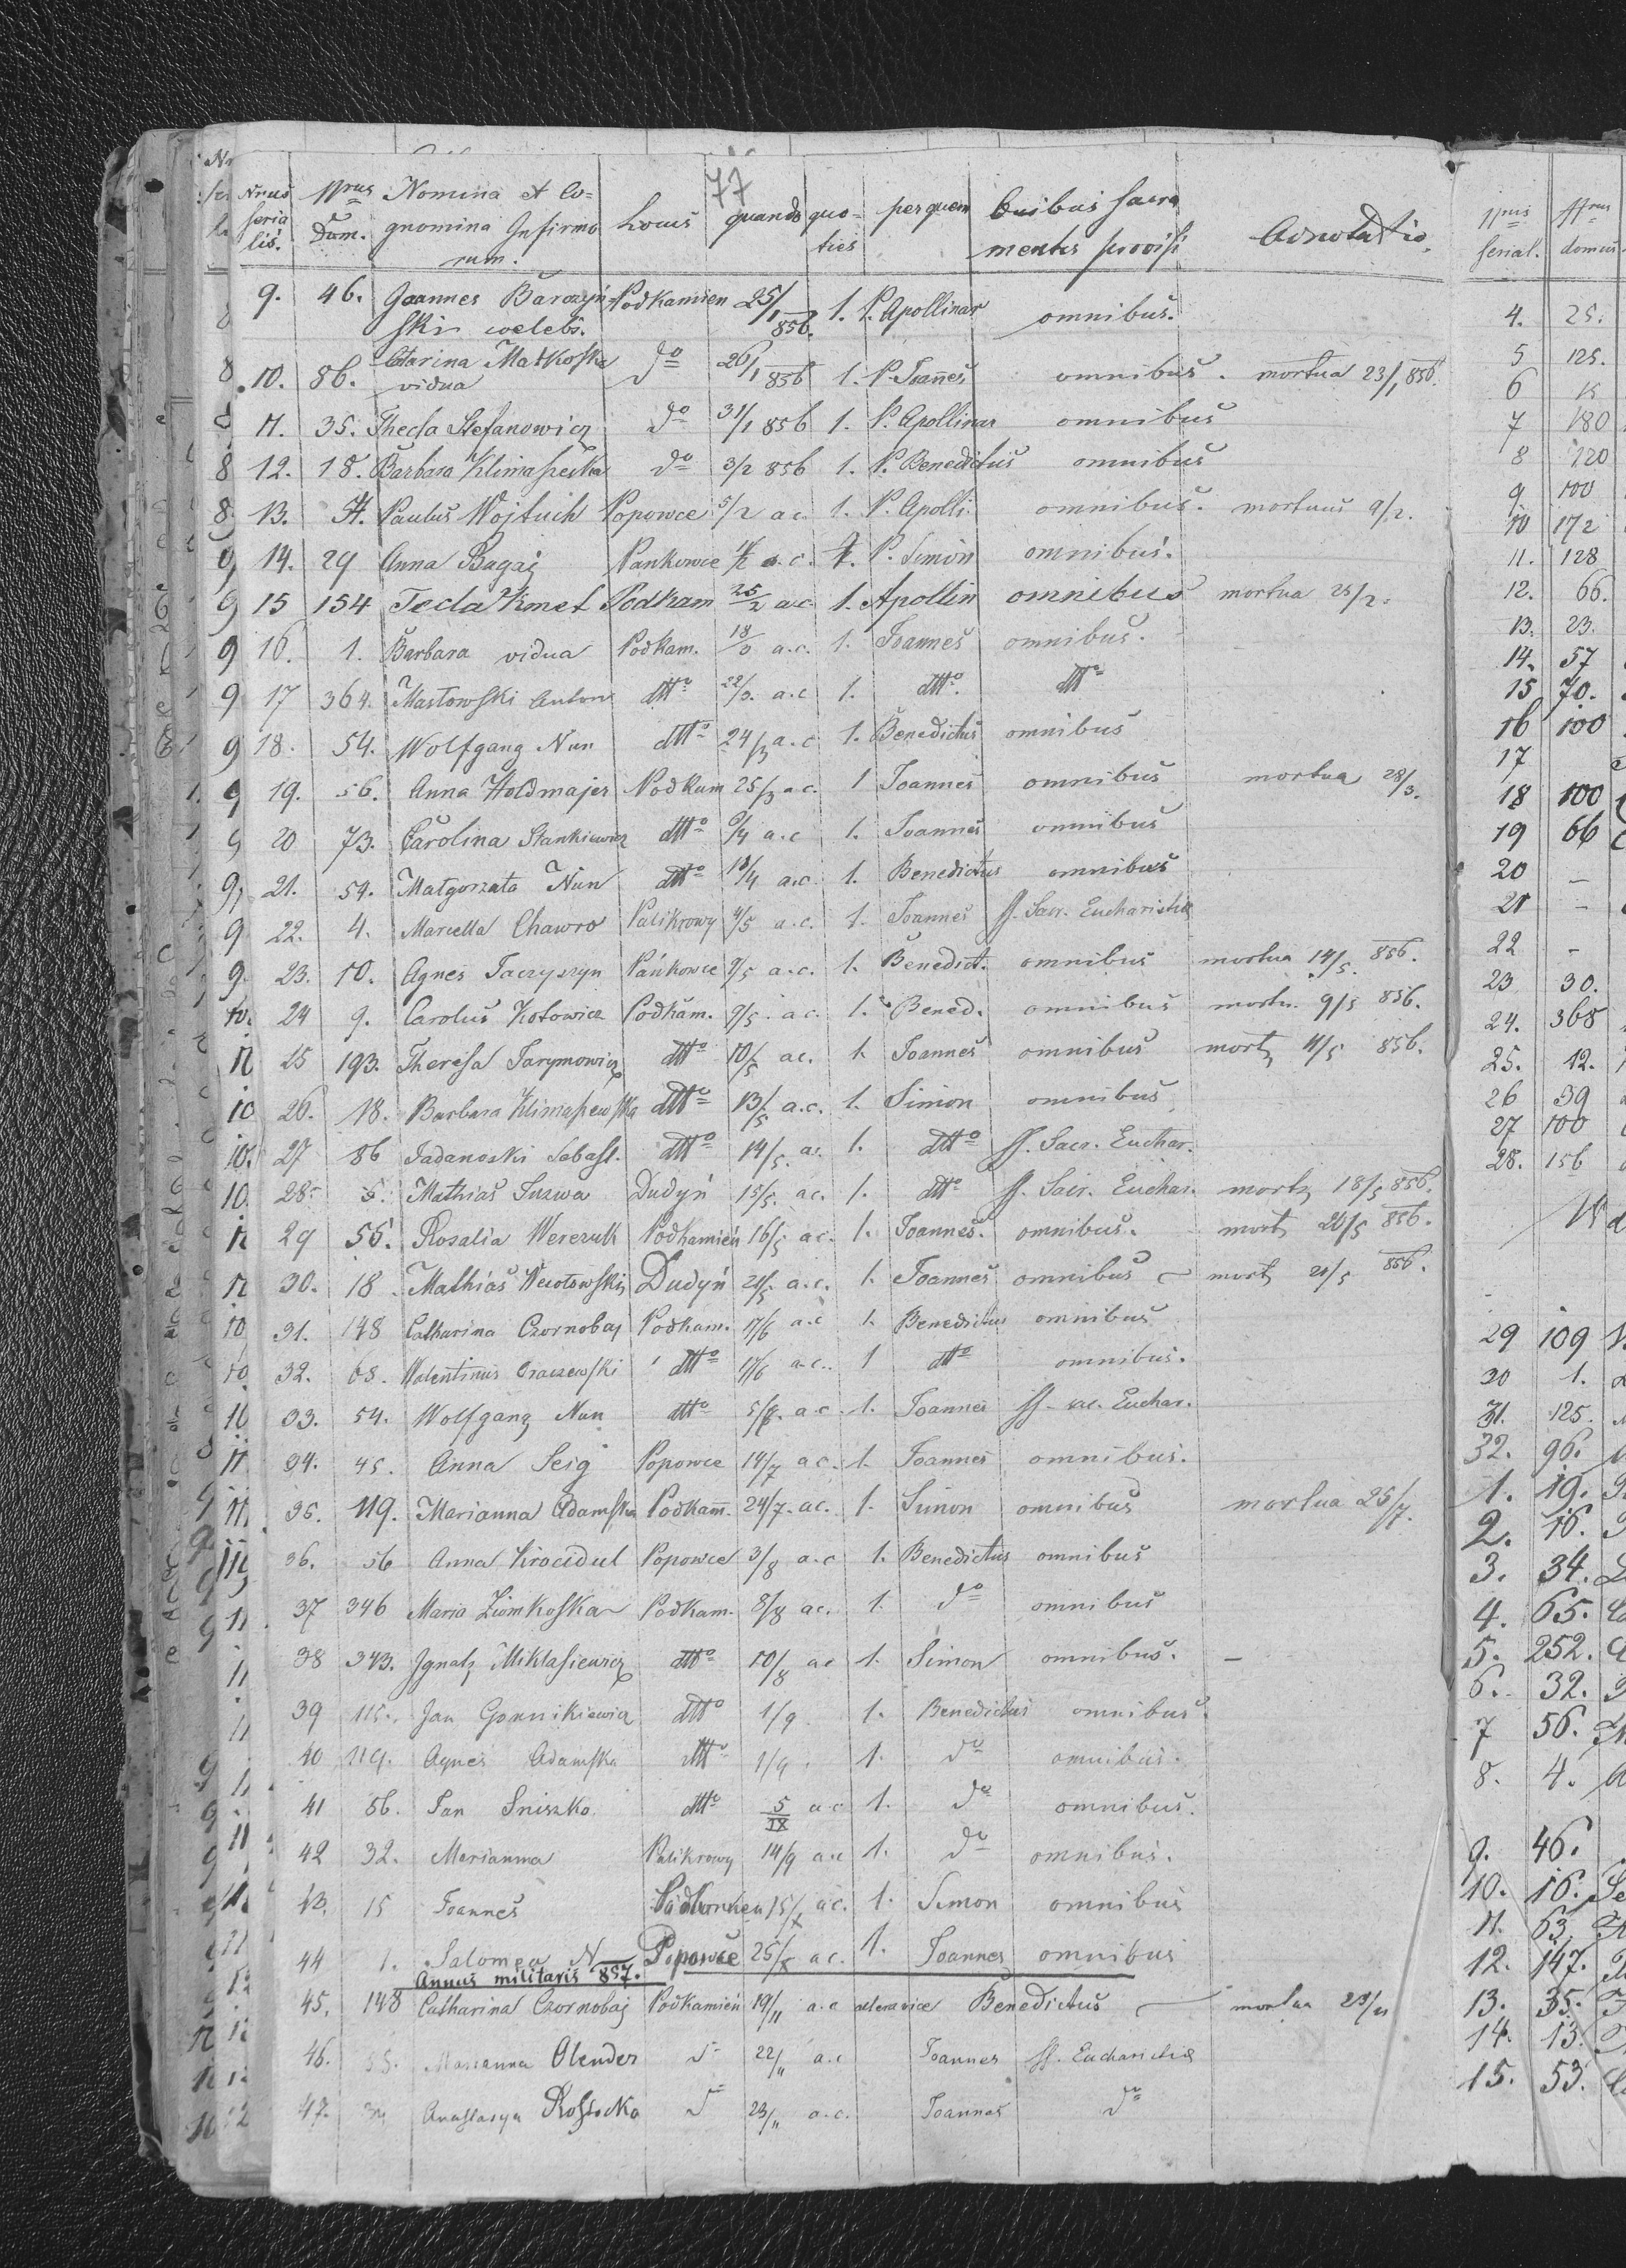 77
Nrus serialis. Nrus Dom. Nomina et Cognomina Infirmorum. Locus quando quoties per quem Quibus Sacramentis provisi Adnotatio.
9. 46. Joannes Barczyński celebs. Podkamien 25/1 856. 1. P. Apollinar omnibus.
10. 86. Catarina Matkoska vidua do 26/1 856 1. P. Joannes omnibus. mortua 23/1 856.
11. 35. Thecla Stefanowicz do 31/1 856 1. P. Apollinar omnibus
12. 18. Barbara Klimaszeska do 3/2 856 1. P. Benedictus omnibus
13. Paulus Wojtuch Popowce 5/2 a.c. 1. P. Apolli. omnibus. mortuus 9/2.
14. 29 Anna Bagaj Pankowce a.c. 1. P. Simon omnibus.
15 154 Tecla Kmet Podkam 25/2 a.c. 1. Apollin omnibus mortua 25/2.
16. 1. Barbara vidua Podkam. 18/3 a.c. 1. Joannes omnibus.
17 364. Mastowski Anton dtto 22/3. a.c 1. dtto. dtto
18. 54. Wolfgang Nun dtto 24/3 a.c 1. Benedictus omnibus
19. 56. Anna Holdmajer Podkam 25/3 a.c. 1 Joannes omnibus mortua 28/3.
20 73. Carolina Stankiewicz dtto 6/4 a.c 1. Joannes omnibus
21. 54. Małgorzata Nun dtto 18/4 a.c. 1. Benedictus omnibus
22. 4. Marcella Chawro Palikrowy 4/5 a.c. 1. Joannes SS. Sacr. Eucharistia
23. 10. Agnes Taczyszyn Pańkowce 9/5 a.c. 1. Benedict. omnibus mortua 14/5. 856.
24 9. Carolus Kotowicz Podkam. 9/5. a.c. 1. Bened. omnibus mortu. 9/5 856.
25 193. Theresa Jarymowicz dtto 10/5 ac. 1. Joannes omnibus mort 11/5 856.
26. 18. Barbara Klimaszewska dtto 13/5 a.c. 1. Simon omnibus
27 86 Sadanoski Sebast. dtto 14/5. ac. 1. dtto SS. Sacr. Euchar.
28. 5. Mathias Suzwa Dudyń 15/5. ac. 1. dtto SS. Sacr. Euchar. mort 18/5 856.
29 55. Rosalia Werezuk Podkamień 16/5 a.c. 1. Joannes. omnibus. mort 20/5 856.
30. 18. Mathias Dudyń 21/5 a.c. 1. Joannes omnibus mort 21/5 856.
31. 148 Catharina Czornobaj Podkam. 17/6 a.c 1. Benedictus omnibus
32. 63. Walentinus dtto 17/6 a.c.. 1 dtto omnibus.
33. 54. Wolfgang Nun dtto a.c. 1. Joannes SS. sac. Euchar.
34. 45. Anna Seig Popowce 14/7 a.c. 1. Joannes omnibus.
35. 119. Marianna Adamska Podkam. 24/7. ac. 1. Simon omnibus mortua 25/7.
36. 56 Anna Krocidul Popowce 3/8 a.c 1. Benedictus omnibus
37 346 Maria Ziomkoska Podkam. 8/8 ac. 1. do omnibus
38 343. Ignatz Miklasiewicz dtto 10/8 ac 1. Simon omnibus. —
39 115. Jan Gonnikiewicz dtto 1/9 1. Benedictus omnibus.
40 119. Agnes Adamska dtto 1/9. 1. do omnibus.
41 56. Jan Sniszko dtto 5/IX a.c 1. do omnibus.
42 32. Marianna Palikrowy 14/9 a.c 1. do omnibus.
43. 15 Joannes a.c. 1. Simon omnibus
44 1. Salomea N Popowce a.c. 1. Joannes omnibus
Annus militaris 857.
45. 148 Catharina Czornobaj Podkamień 19/11 a.c altera vice Benedictus mortua 23/11
46. 55. Marianna Olender d 22/11 a.c Joannes SS. Eucharistia
47. Anastasya d 23/11 a.c. Joannes do
Nrus serial. Nrus domus
4. 25.
5 125.
6 15
7 180
8 120
9 100
10 172
11. 128
12. 66.
13. 23.
14. 57
15 70.
16 100
17
18 100
19 66
20 —
21 —
22 —
23 30.
24. 368
25. 12.
26 39
27 100
28. 156
29 109
30 1.
31. 125.
32. 96.
1. 19.
2. 16.
3. 34.
4. 65.
5. 252.
6. 32.
7 56.
8. 4.
9. 46.
10. 16.
11. 63
12. 147.
13. 35.
14. 13.
15. 53.